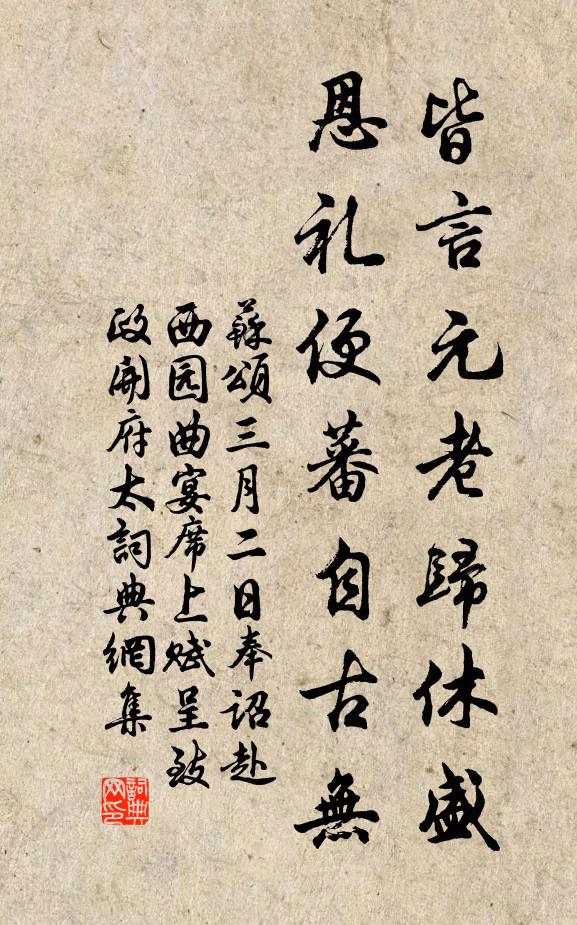 皆言元老歸休盛
恩礼便蕃自古無
蘇頌三月二日奉詔赴
西园曲宴席上賦呈致
政開府太詞典網集
詞典网印